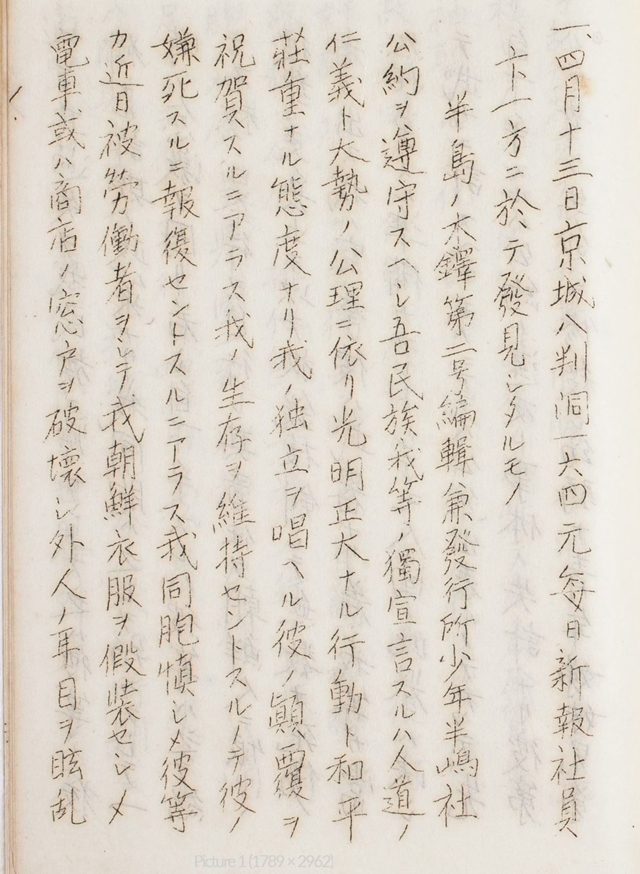 一、四月十三日京城八判洞一六四元每日新報社員
卞一方ニ於テ發見シタルモノ
半島ノ木鐸第二号編輯兼發行所少年半嶋社
公約ヲ遵守スヘシ吾民族我等ノ獨宣言スルハ人道ノ
仁義ト大勢ノ公理ニ依リ光明正大ナル行動ト和平
莊重ナル態度ナリ我ノ独立ヲ唱ヘル彼ノ顚覆ヲ
祝賀スルニアラス我ノ生存ヲ維持セントスルノテ彼ノ
嫌死スルニ報復セントスルニアラス我同胞慎シメ彼等
カ近日被労働者ヲシテ我朝鮮衣服ヲ假装セシメ
電車或ハ商店ノ窓戸ヲ破壊シ外人ノ耳目ヲ眩乱
Picture 1 (1789 × 2962)